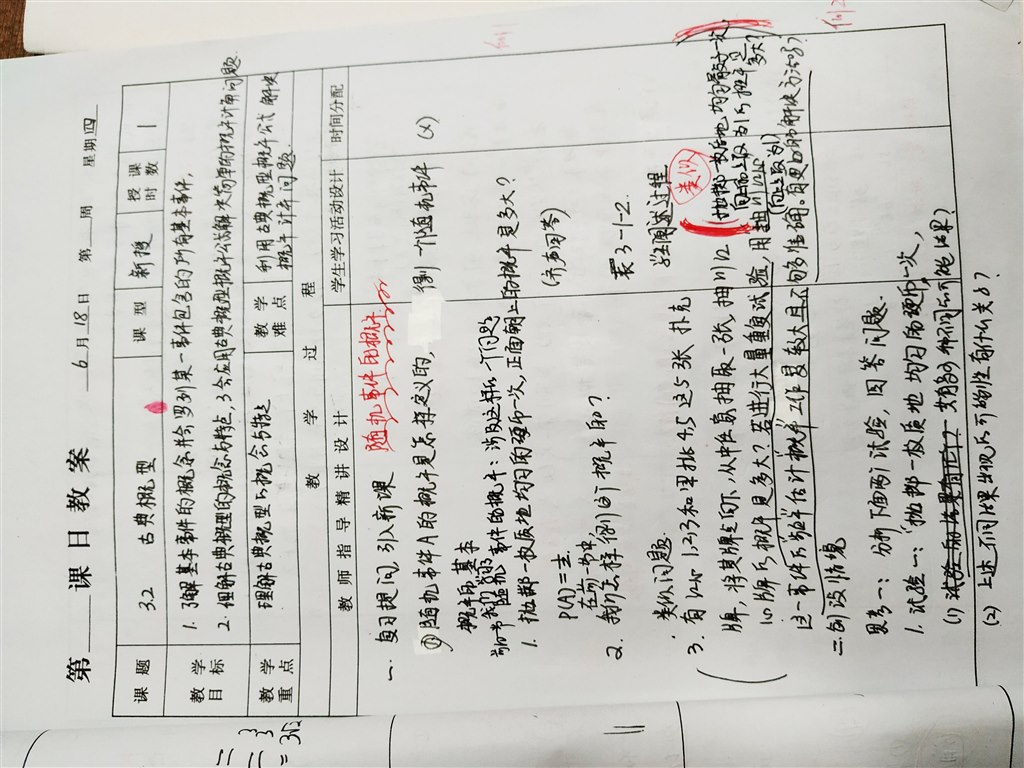 第 课日教案
6月18日 第 周 星期四
课题 3.2 古典概型 课型 新授 授课时数 1
教学目标
1. 了解基本事件的概念并会罗列某一事件包含的所有基本事件,
2. 理解古典概型的概念与特点, 3 会应用古典概型概率公式解决简单的概率计算问题
教学重点 理解古典概型的概念与特点
教学难点 利用古典概型概率公式解决概率计算问题.
教学过程
教师指导精讲设计 学生学习活动设计 时间分配
一. 复习提问, 引入新课 随机事件的概率
① 随机事件A的概率是怎样定义的, 得到一个随机事件 (x)
概率的基本
事件的概率: 涉及这样的一个问题
1. 抛掷一枚质地均匀的硬币一次, 正面朝上的概率是多大?
P(A)= (齐声回答)
2. 我们怎样得到的概率的? 表3-1-2
类似问题 学生阐述过程
3. 有红心1,2,3和黑桃4,5这5张扑克
牌, 将其牌点向下, 从中任意抽取一张, 抽到红
心的牌的概率是多大? 若进行大量重复试验, 用抽到红心
这一事件的频率估计概率, 工作量较大且不够准确, 有更好的解决方法吗?
类似
抛掷一枚质地均匀的骰子一次
向上面点数为1的概率是多大?
二. 创设情境
思考一: 分析下面两个试验, 回答问题.
1. 试验一: 抛掷一枚质地均匀的硬币一次,
(1) 试验的结果有几个?
(2) 上述不同结果出现的可能性有什么关系?